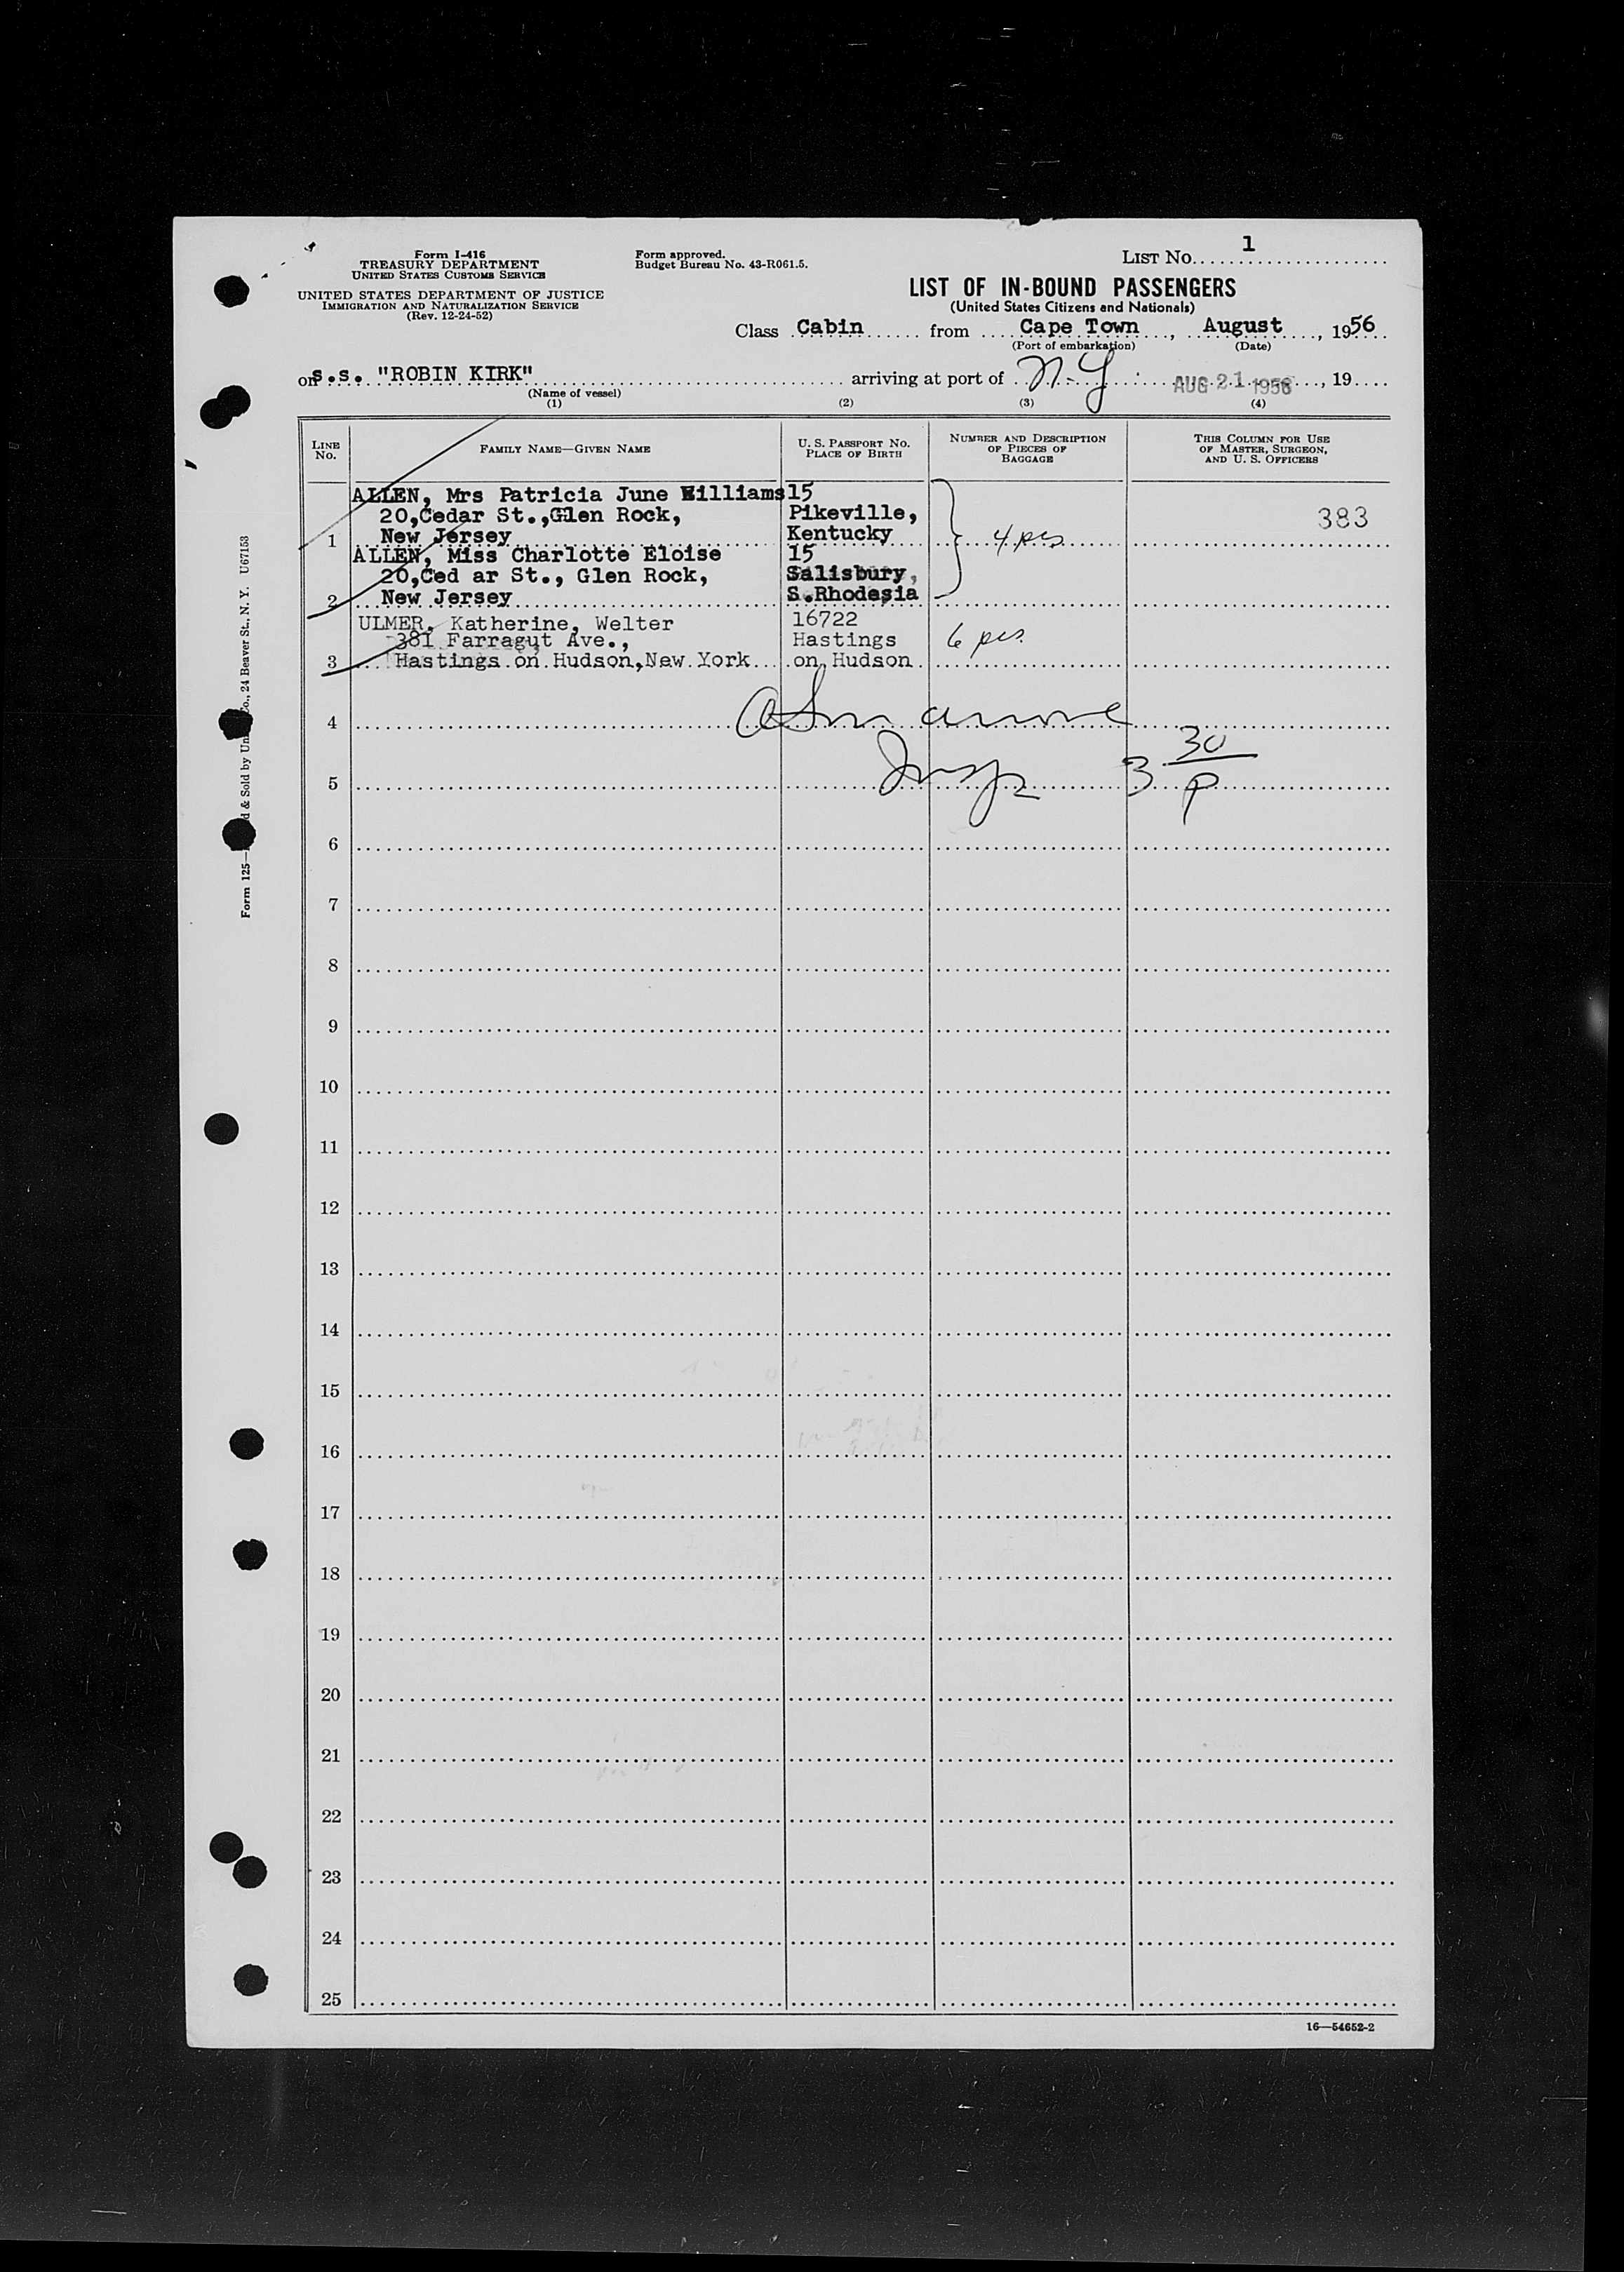 Form I-416
TREASURY DEPARTMENT
UNITED STATES CUSTOMS SERVICE
UNITED STATES DEPARTMENT OF JUSTICE
IMMIGRATION AND NATURALIZATION SERVICE
(Rev. 12-24-52)
Form approved.
Budget Bureau No. 43-R061.5.
LIST No. 1
LIST OF IN-BOUND PASSENGERS
(United States Citizens and Nationals)
Class Cabin from Cape Town, August, 1956
(Port of embarkation) (Date)
on s.s. "ROBIN KIRK" arriving at port of N.Y. AUG 21 1956, 19
(Name of vessel)
(1) (2) (3) (4)
LINE No.
FAMILY NAME—GIVEN NAME
U. S. PASSPORT NO.
PLACE OF BIRTH
NUMBER AND DESCRIPTION
OF PIECES OF
BAGGAGE
THIS COLUMN FOR USE
OF MASTER, SURGEON,
AND U. S. OFFICERS
ALLEN, Mrs Patricia June Williams 15
20,Cedar St.,Glen Rock, Pikeville, 383
1 New Jersey Kentucky 4 pcs
ALLEN, Miss Charlotte Eloise 15
20,Ced ar St., Glen Rock, Salisbury,
2 New Jersey S.Rhodesia
ULMER, Katherine, Welter 16722
381 Farragut Ave., Hastings 6 pcs
3 Hastings on Hudson,New York on Hudson
4
5 Insp 3 30 P
6
7
8
9
10
11
12
13
14
15
16
17
18
19
20
21
22
23
24
25
16—54652-2
Form 125— d & Sold by Un Co., 24 Beaver St., N. Y. U67153